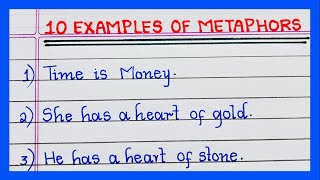 10 EXAMPLES OF METAPHORS
1) Time is Money.
2) She has a heart of gold.
3) He has a heart of stone.